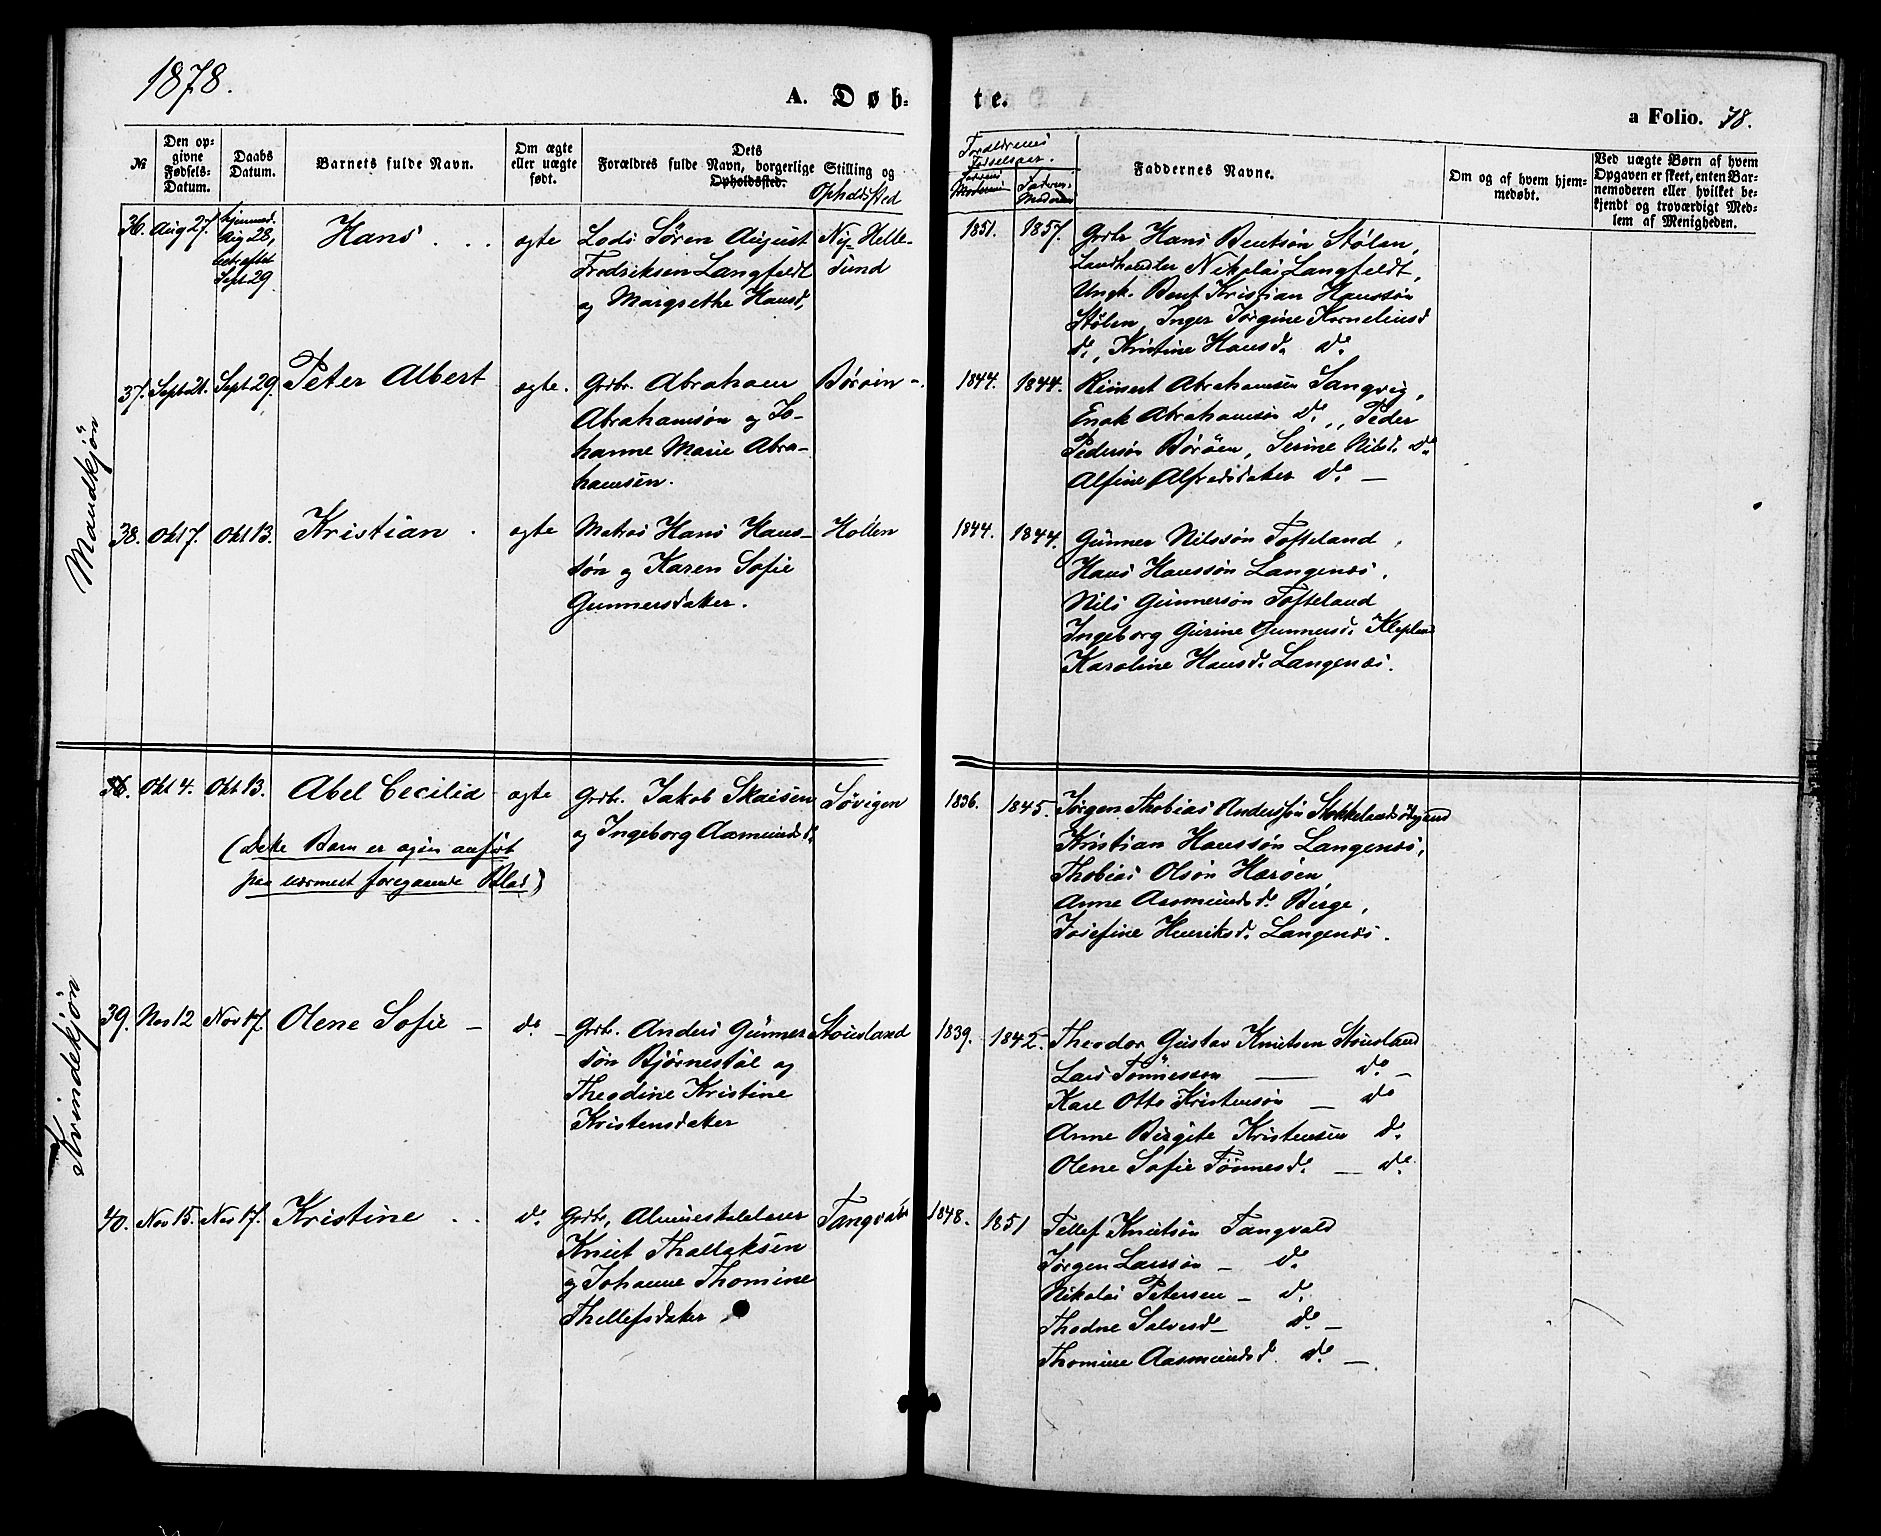 1878.
A. Døb-
te.
a Folio. 78.
№
Den opgivne Fødsels-Datum.
Daabs Datum.
Barnets fulde Navn.
Om ægte eller uægte født.
Dets Forældres fulde Navn, borgerlige Stilling og Opholdssted.
Opholdssted
Forældrenes Fødselsaar.
Faddernes Navne.
Om og af hvem hjemmedøbt.
Ved uægte Børn af hvem Opgaven er skeet, enten Barnemoderen eller hvilket bekjendt og troværdigt Medlem af Menigheden.
Mandkjøn
36. Aug 27. hjemmed. Aug 28, Sept 29. Hans ægte
Lods Søren August
Fredriksen Langfeldt
og Margrethe Hansd,
Ny-Helle-
sund
1851. 1857.
Grdbr Hans Bentsøn Stølen,
Landhandler Nikolai Langfeldt,
Ungk. Bent Kristian Hanssøn
Stølen, Inger Jørgine Korneliusd
do, Kristine Hansd. do
37. Sept 21. Sept 29. Peter Albert ægte.
Grdbr. Abraham
Abrahamsøn og Jo-
hanne Marie Abra-
hamsen.
Børøen
1844. 1844.
Reinert Abrahamsen Langvig,
Enok Abrahamsøn do, Peder
Pedersøn Børøen, Serine Nilsd. do
Alfine Alfredsdatter do —
38. Okt 7. Okt 13. Kristian ægte
Matros Hans Hans-
søn og Karen Sofie
Gunnersdatter.
Hollen
1844. 1844.
Gunner Nilssøn Tofteland,
Hans Hanssøn Langenæs,
Nils Gunnersøn Tofteland
Ingeborg Gurine Gunnersd. Klepland
Karoline Hansd. Langenæs.
Kvindekjøn
Okt 4. Okt 13. Abel Cecilia ægte
(Dette Barn er ogsaa anført
paa nærmest foregaaende Blad)
Grdbr. Jakob Skaisen
og Ingeborg Aasmundsd.
Søvigen
1836. 1845.
Jørgen Thobias Anderssøn Stokkelandsødegaard
Kristian Hanssøn Langenæs,
Thobias Olsøn Herøen
Anne Aasmundsd. Birge,
Josefine Henriksd. Langenæs.
39. Nov 12 Nov 17. Olene Sofie — do
Grdbr. Anders Gunner-
søn Bjørnestøl og
Theodine Kristine
Kristensdatter
Stousland
1839. 1842.
Theodor Gustav Knutsen Stousland
Lars Tønnesson — do —
Karl Otto Kristensøn — do
Anne Birgite Kristensen do
Olene Sofie Tønnesd. — do
40. Nov 15. Nov 17. Kristine do
Grdbr, Almueskolelærer
Knut Thallaksen
og Johanne Thomine
Thellefsdatter
Tangvald
1848. 1851
Tellef Knutsøn Tangvald
Jørgen Larssøn — do
Nikolai Petersen — do
Thodne Salvesd — do —
Thomine Aasmundsd. do —